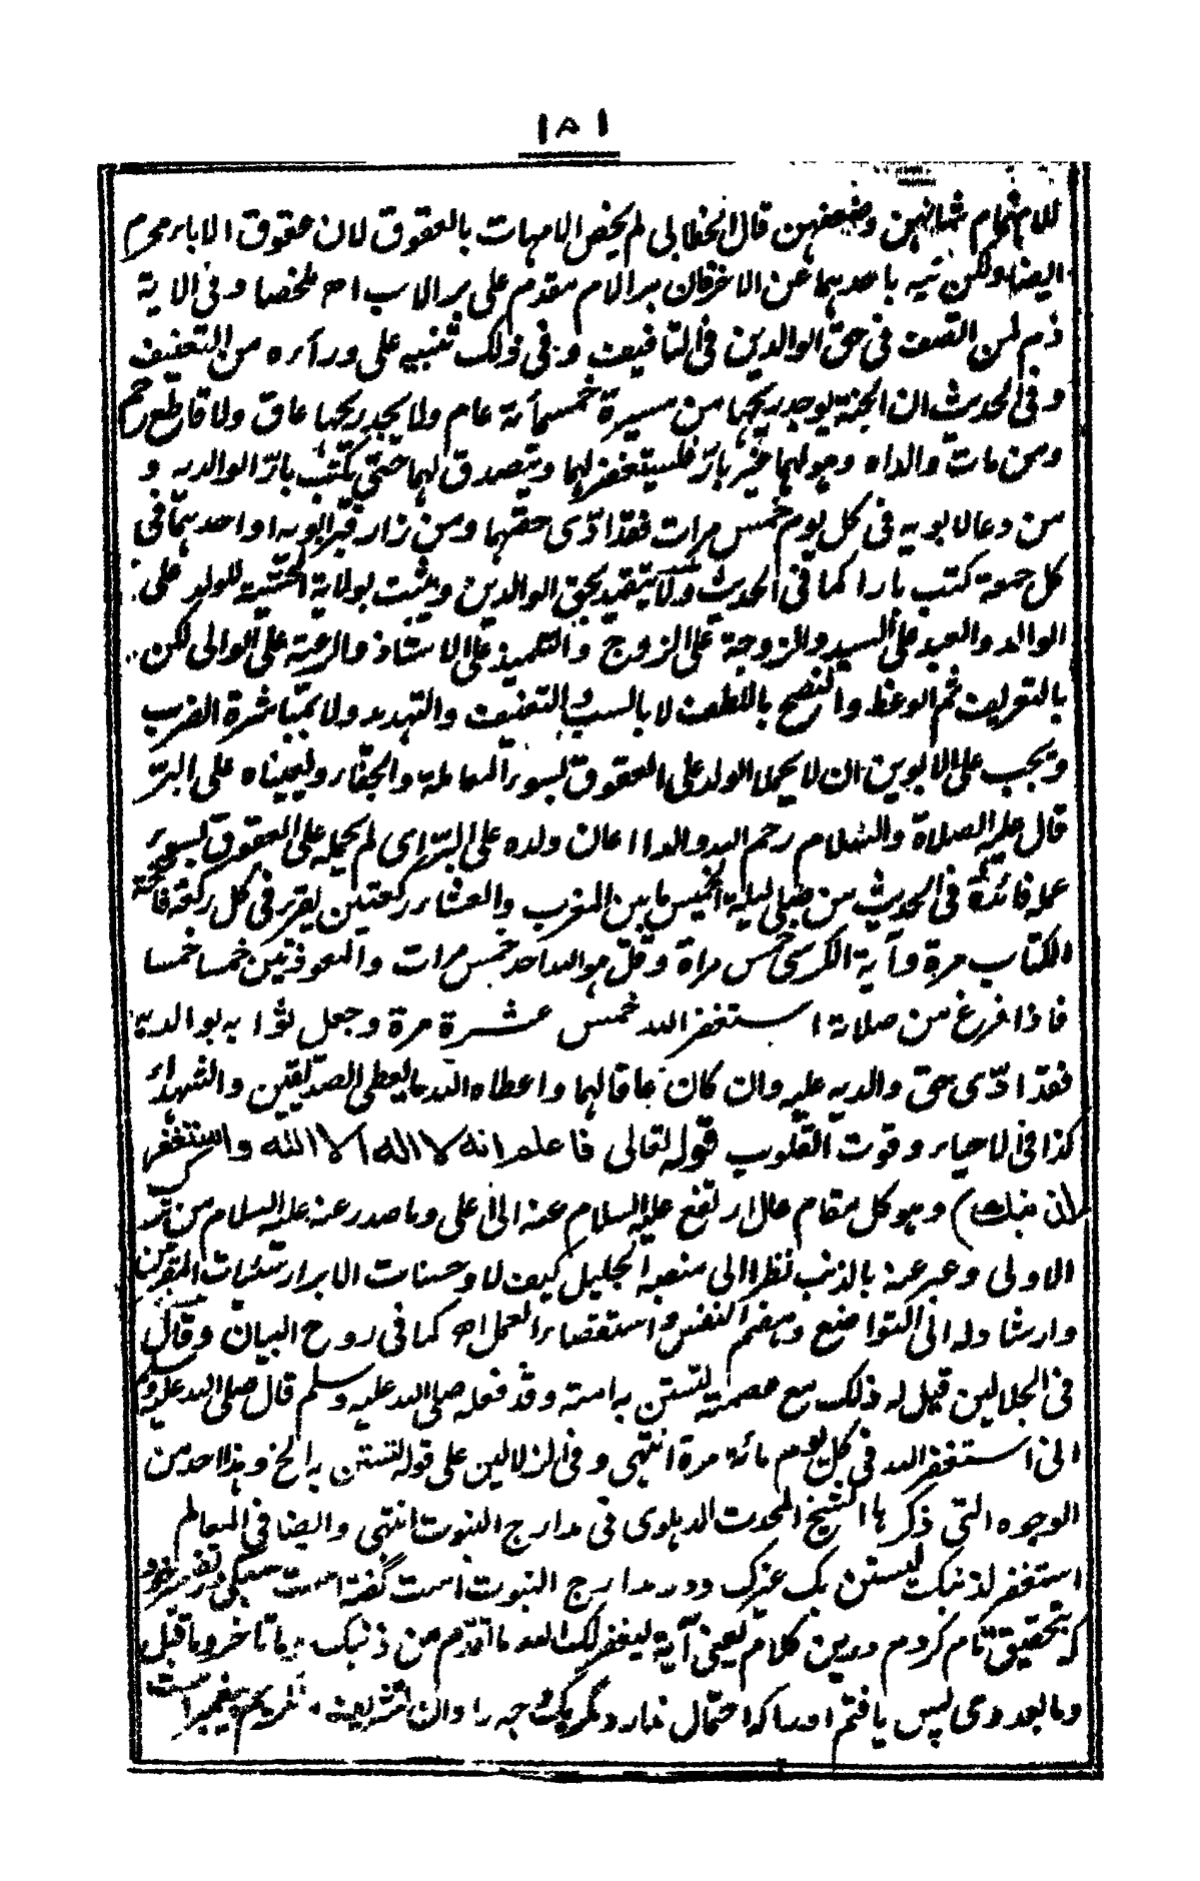 ١٥١
للاهتمام بشانهن وضعفهن قال الخطابى لم يخص الامهات بالعقوق لان عقوق الاباء محرم
ايضا ولكن نبه باحدهما عن الاخر فان بر الام مقدم على بر الاب اه ملخصا وفى الاية
ذم لمن اتصف فى حق الوالدين فى التافيف وفى ذلك تنبيه على وراءه من التعنيف
وفى الحديث ان الجنة يوجد ريحها من مسيرة خمسمأئة عام ولا يجد ريحها عاق ولا قاطع رحم
ومن مات والداه وهو لهما غير بارّ فليستغفر لهما ويتصدق لهما حتى يكتب بارّا لوالديه و
من دعا لابويه فى كل يوم خمس مرات فقد ادّى حقهما ومن زار قبر ابويه او احدهما فى
كل جمعة كتب بارا كما فى الحديث ولا يتقيد بحق الوالدين ويثبت بولاية الحسبة للولد على
الوالد والعبد على السيد والزوجة على الزوج والتلميذ على الاستاذ والرعية على الوالى لكن
بالتعريف ثم الوعظ والنصح باللطف لا بالسب والتعنيف والتهديد ولا بمباشرة الضرب
ويجب على الابوين ان لا يحملا الولد على العقوق بسوء المعاملة والجفاء ويعيناه على البرّ
قال عليه الصلاة والسلام رحم الله والدا اعان ولده على البرّ اى لم يحمله على العقوق بسوء
عمله فائدة فى الحديث من صلى ليلة الخميس ما بين المغرب والعشاء ركعتين يقرء فى كل ركعة فاتحة
الكتاب مرة وآية الكرسى خمس مراة وقل هو الله احد خمس مرات والمعوذتين خمسا خمسا
فاذا فرغ من صلاته استغفر الله خمس عشرة مرة وجعل ثوابه لوالديه
فقد ادّى حق والديه عليه وان كان عاقا لهما واعطاه الله ما يعطى الصدّيقين والشهداء
كذا فى الاحياء وقوت القلوب قوله تعالى فاعلم انه لا اله الا الله واستغفر
لذنبك) وهو كل مقام عال ارتفع عليه السلام عنه الى اعلى وما صدر عنه عليه السلام من ترك
الاولى وعبر عنه بالذنب نظرا الى منصبه الجليل كيف لا وحسنات الابرار سيئات المقربين
وارشادله الى التواضع وهضم النفس واستقصاء العمل اه كما فى روح البيان وقال
فى الجلالين قيل له ذلك مع عصمته لتستن به امته وقد فعله صلى الله عليه وسلم قال صلى الله عليه وسلم
انى استغفر الله فى كل يوم مائة مرة انتهى وفى الزلالين على قوله لتستن به الخ وهذا احد من
الوجوه التى ذكرها الشيخ المحدث الدهلوى فى مدارج النبوت انتهى وايضا فى المعالم
استغفر لذنبك ليستن بك غيرك ودر مدارج النبوت است گفته است سبكى در تفسير خود
كه تحقيق تام كردم درين كلام يعنى آية ليغفر لك الله ما تقدم من ذنبك وما تاخر وما قبل
وما بعد وى پس يافتم او را كه احتمال ندارد مگر يك وجه را وان تشريف وتكريم پيغمبر است